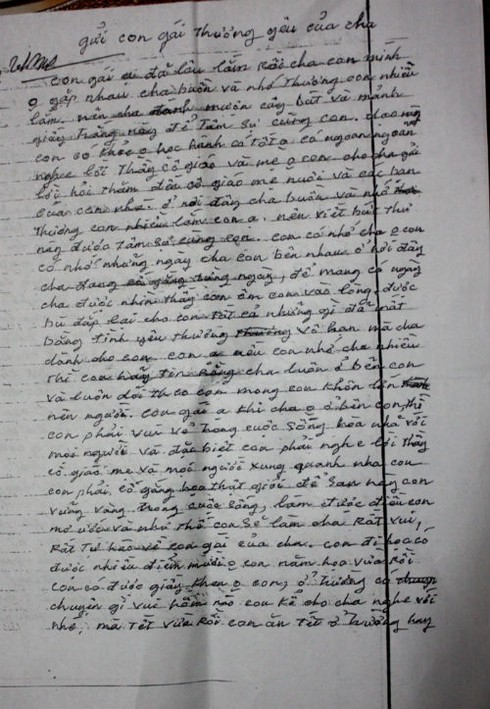 gửi con gái thương yêu của cha
con gái ơi đã lâu lắm rồi cha con mình
o gặp nhau cha buồn và nhớ thương con nhiều
lắm. nên cha đành mượn cây bút và mảnh
giấy trắng này để tâm sự cùng con. dạo này
con có khỏe o học hành có tốt o có ngoan ngoan
nghe lời thầy cô giáo và mẹ o con cho cha gửi
lời hỏi thăm đến cô giáo mẹ nuôi và các bạn
của con nhé. ở nơi đây cha buồn và nhớ
thương con nhiều lắm con ạ. nên viết bức thư
này được tâm sự cùng con. con có nhớ cha o con
có nhớ những ngày cha con bên nhau ở nơi đây
cha đang cố gắng từng ngày, để mang có ngày
cha được nhìn thấy con ôm con vào lòng được
bù đắp lại cho con tất cả những gì đã mất
bằng tình yêu thương vô hạn mà cha
dành cho con con ạ nếu con nhớ cha nhiều
thì con hãy tin rằng cha luôn ở bên con
và luôn dõi theo con mong con khôn lớn
nên người. con gái ạ khi cha o ở bên con, thì
con phải vui vẻ trong cuộc sống hòa nhã với
mọi người và đặc biệt con phải nghe lời thầy
cô giáo mẹ và mọi người xung quanh nha con
con phải cố gắng học thật giỏi để sau này con
vững vàng trong cuộc sống, làm được điều con
mơ ước và như thế con sẽ làm cha rất vui,
rất tự hào về con gái của cha. con đi học có
được nhiều điểm mười o con năm học vừa rồi
con có được giấy khen o con, ở trường có
chuyện gì vui hôm nào con kể cho cha nghe với
nhé, mà tết vừa rồi con ăn tết ở trường hay